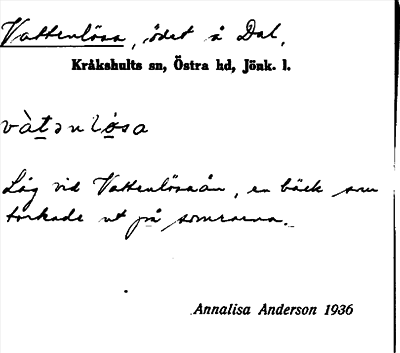 Vattenlösa, ödet å Dal,
Kråkshults sn, Östra hd, Jönk. l.
vàtənlọ́sa
Låg vid Vattenlösaån, en bäck som
torkade ut på somrarna.
Annalisa Anderson 1936